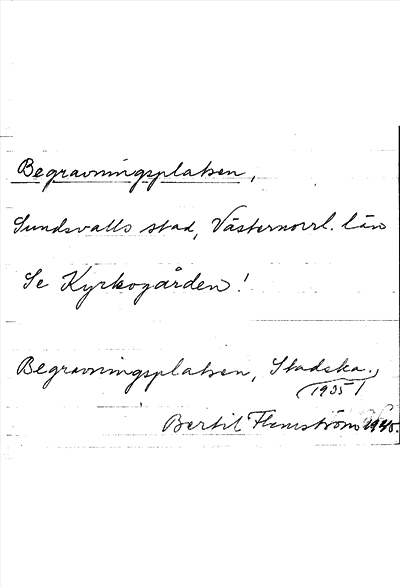 Begravningsplatsen,
Sundsvalls stad, Västernorrl. län
Se Kyrkogården!
Begravningsplatsen, Stadska.,
1935
Bertil Flemström 1940.